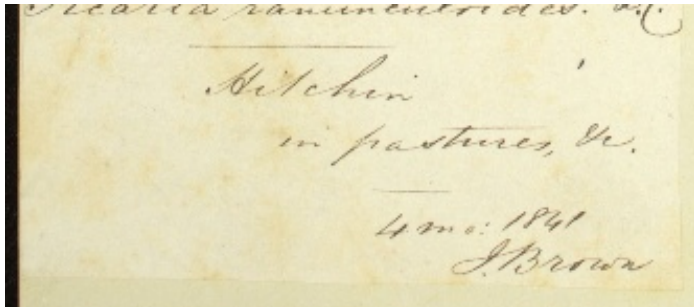 Ficaria ranunculoides. D.C.
Hitchin
in pastures, &c.
4 mo: 1841
J. Brown